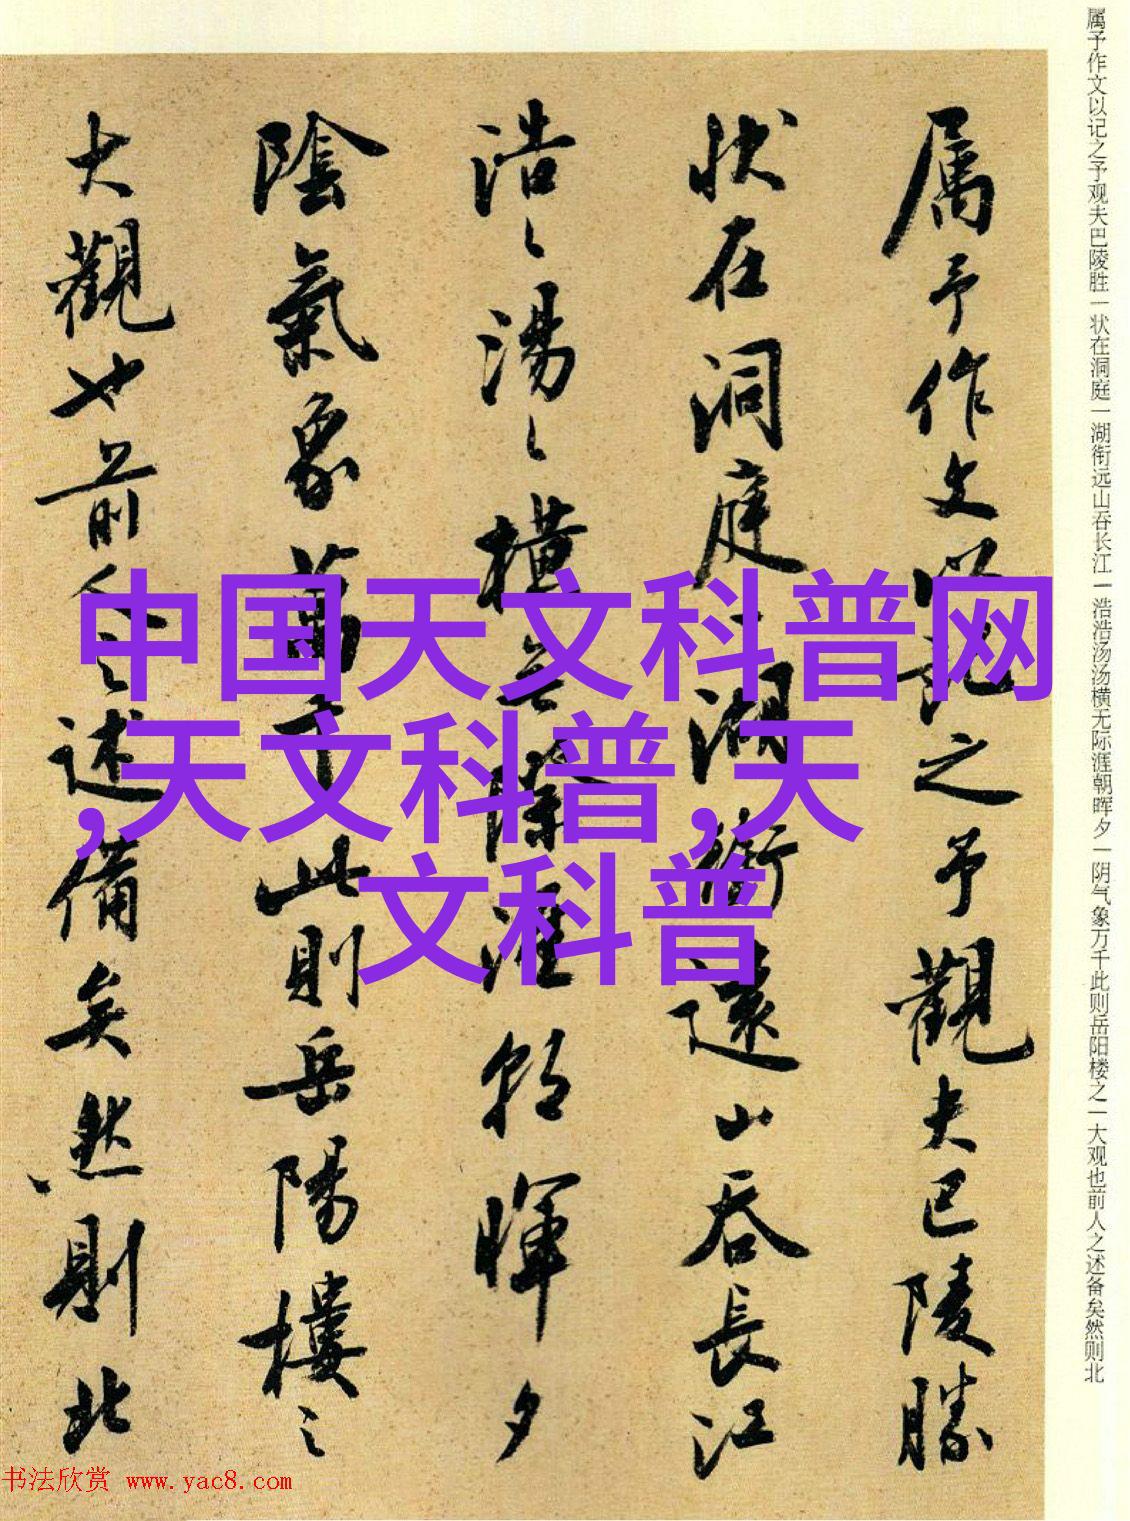 属予作文以记之予观夫巴陵胜一状在洞庭一湖衔远山吞长江一浩浩汤汤横无际涯朝晖夕一阴气象万千此则岳阳楼之一大观也前人之述备矣然则北
属予作文以记之予觀夫巴陵勝
狀在洞庭一湖銜遠山吞長江
浩〻湯〻橫無際涯朝暉夕
陰氣象萬千此則岳陽樓之
大觀也前人之述備矣然則北
中国天文科普网
,天文科普,天
文科普
书法欣赏 www.yac8.com